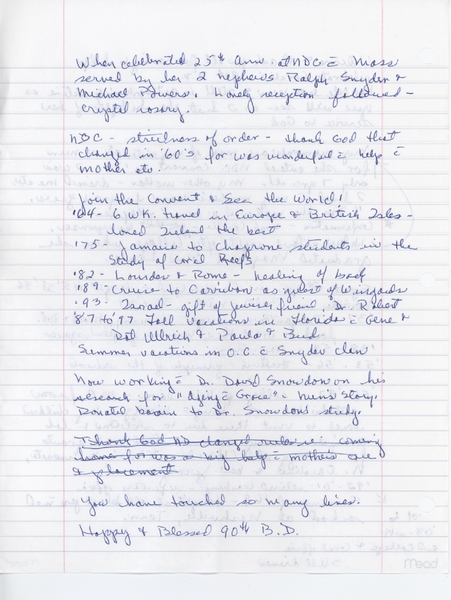 When celebrated 25th Anniv at NDC c̄ Mass
served by her 2 nephews Ralph Snyder +
Michael Powers. Lovely reception followed -
crystal rosary.
NDC - strictness of order - thank God that
changed in '60's for was wonderful c̄ help c̄
mother etc.
Join the Convent & See the World!
'64 - 6 WK. travel in Europe & British Isles -
loved Ireland the best
'75 - Jamaica to chaperone students in the
Study of Coral Reefs
'82 - Lourdes & Rome - healing of back
'89 - Cruise to Carribean as guest of Wingards
'93 - Israel - gift of Jewish friend, Dr. Robert
'87 to '97 Fall vacations in Florida c̄ Gene &
Dot Ullrich & Paula & Bud.
Summer vacations in O.C. c̄ Snyder Clan
Now working c̄ Dr. David Snowdon on his
research for "Aging c̄ Grace" - nun's story.
Donated brain to Dr. Snowdon's study.
Thank God ND changed rules in coming
home for was a big help c̄ mother's care
& placement
You have touched so many lives.
Happy & Blessed 90th B.D.
Mead